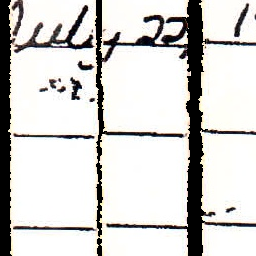 July 22, 1